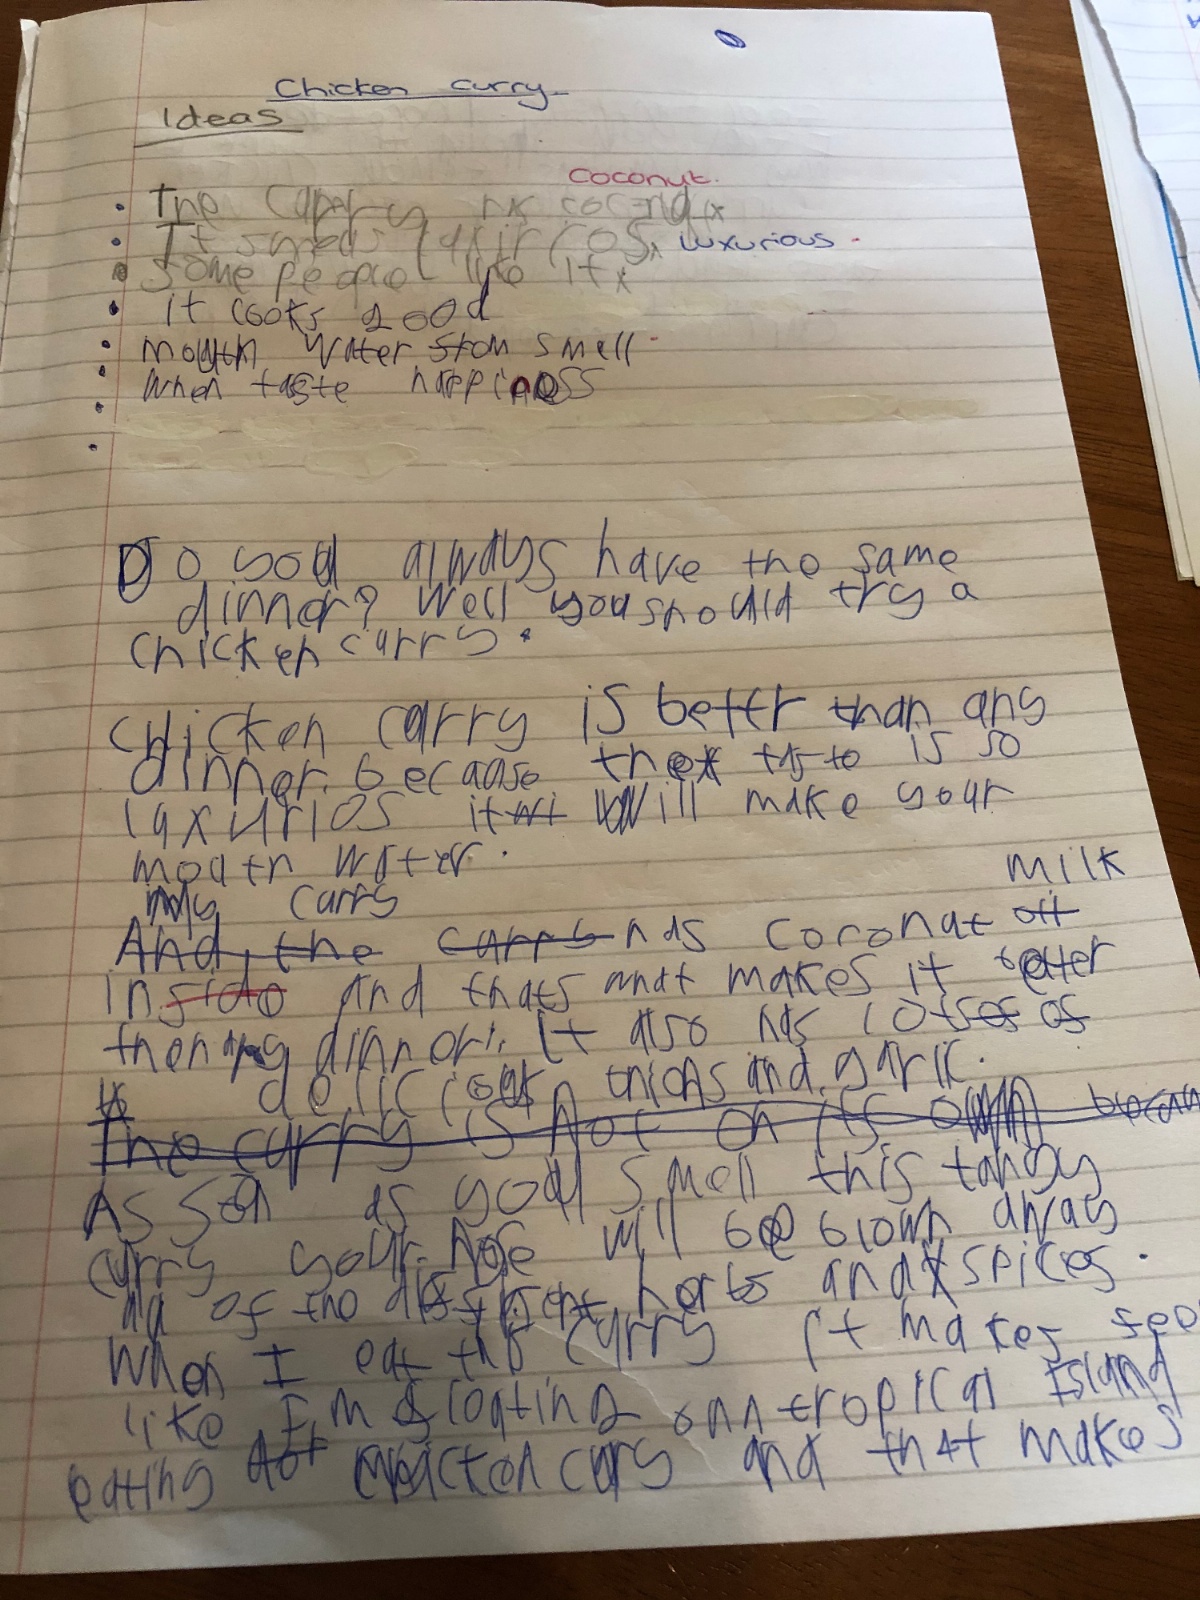 Chicken curry
Ideas
coconut.
The has
It luxurious
Some people like it
it looks good
mouth water from smell
When taste happiness
Do you always have the same
dinner? Well you should try a
chicken curry.
Chicken curry is better than any
dinner. because the taste is so
luxurios it will make your
mouth water.
milk
My curry
And, the curry has coconut oil
inside And thats what makes it better
then any dinner. It also has lots of of
delicious onions and garlic.
The curry is not on its own
As soon as you smell this tangy
curry your nose will be blown away
all of the different herbs and spices.
When I eat the curry it makes
like I'm floating on a tropical Island
eating chicken cury and that makes